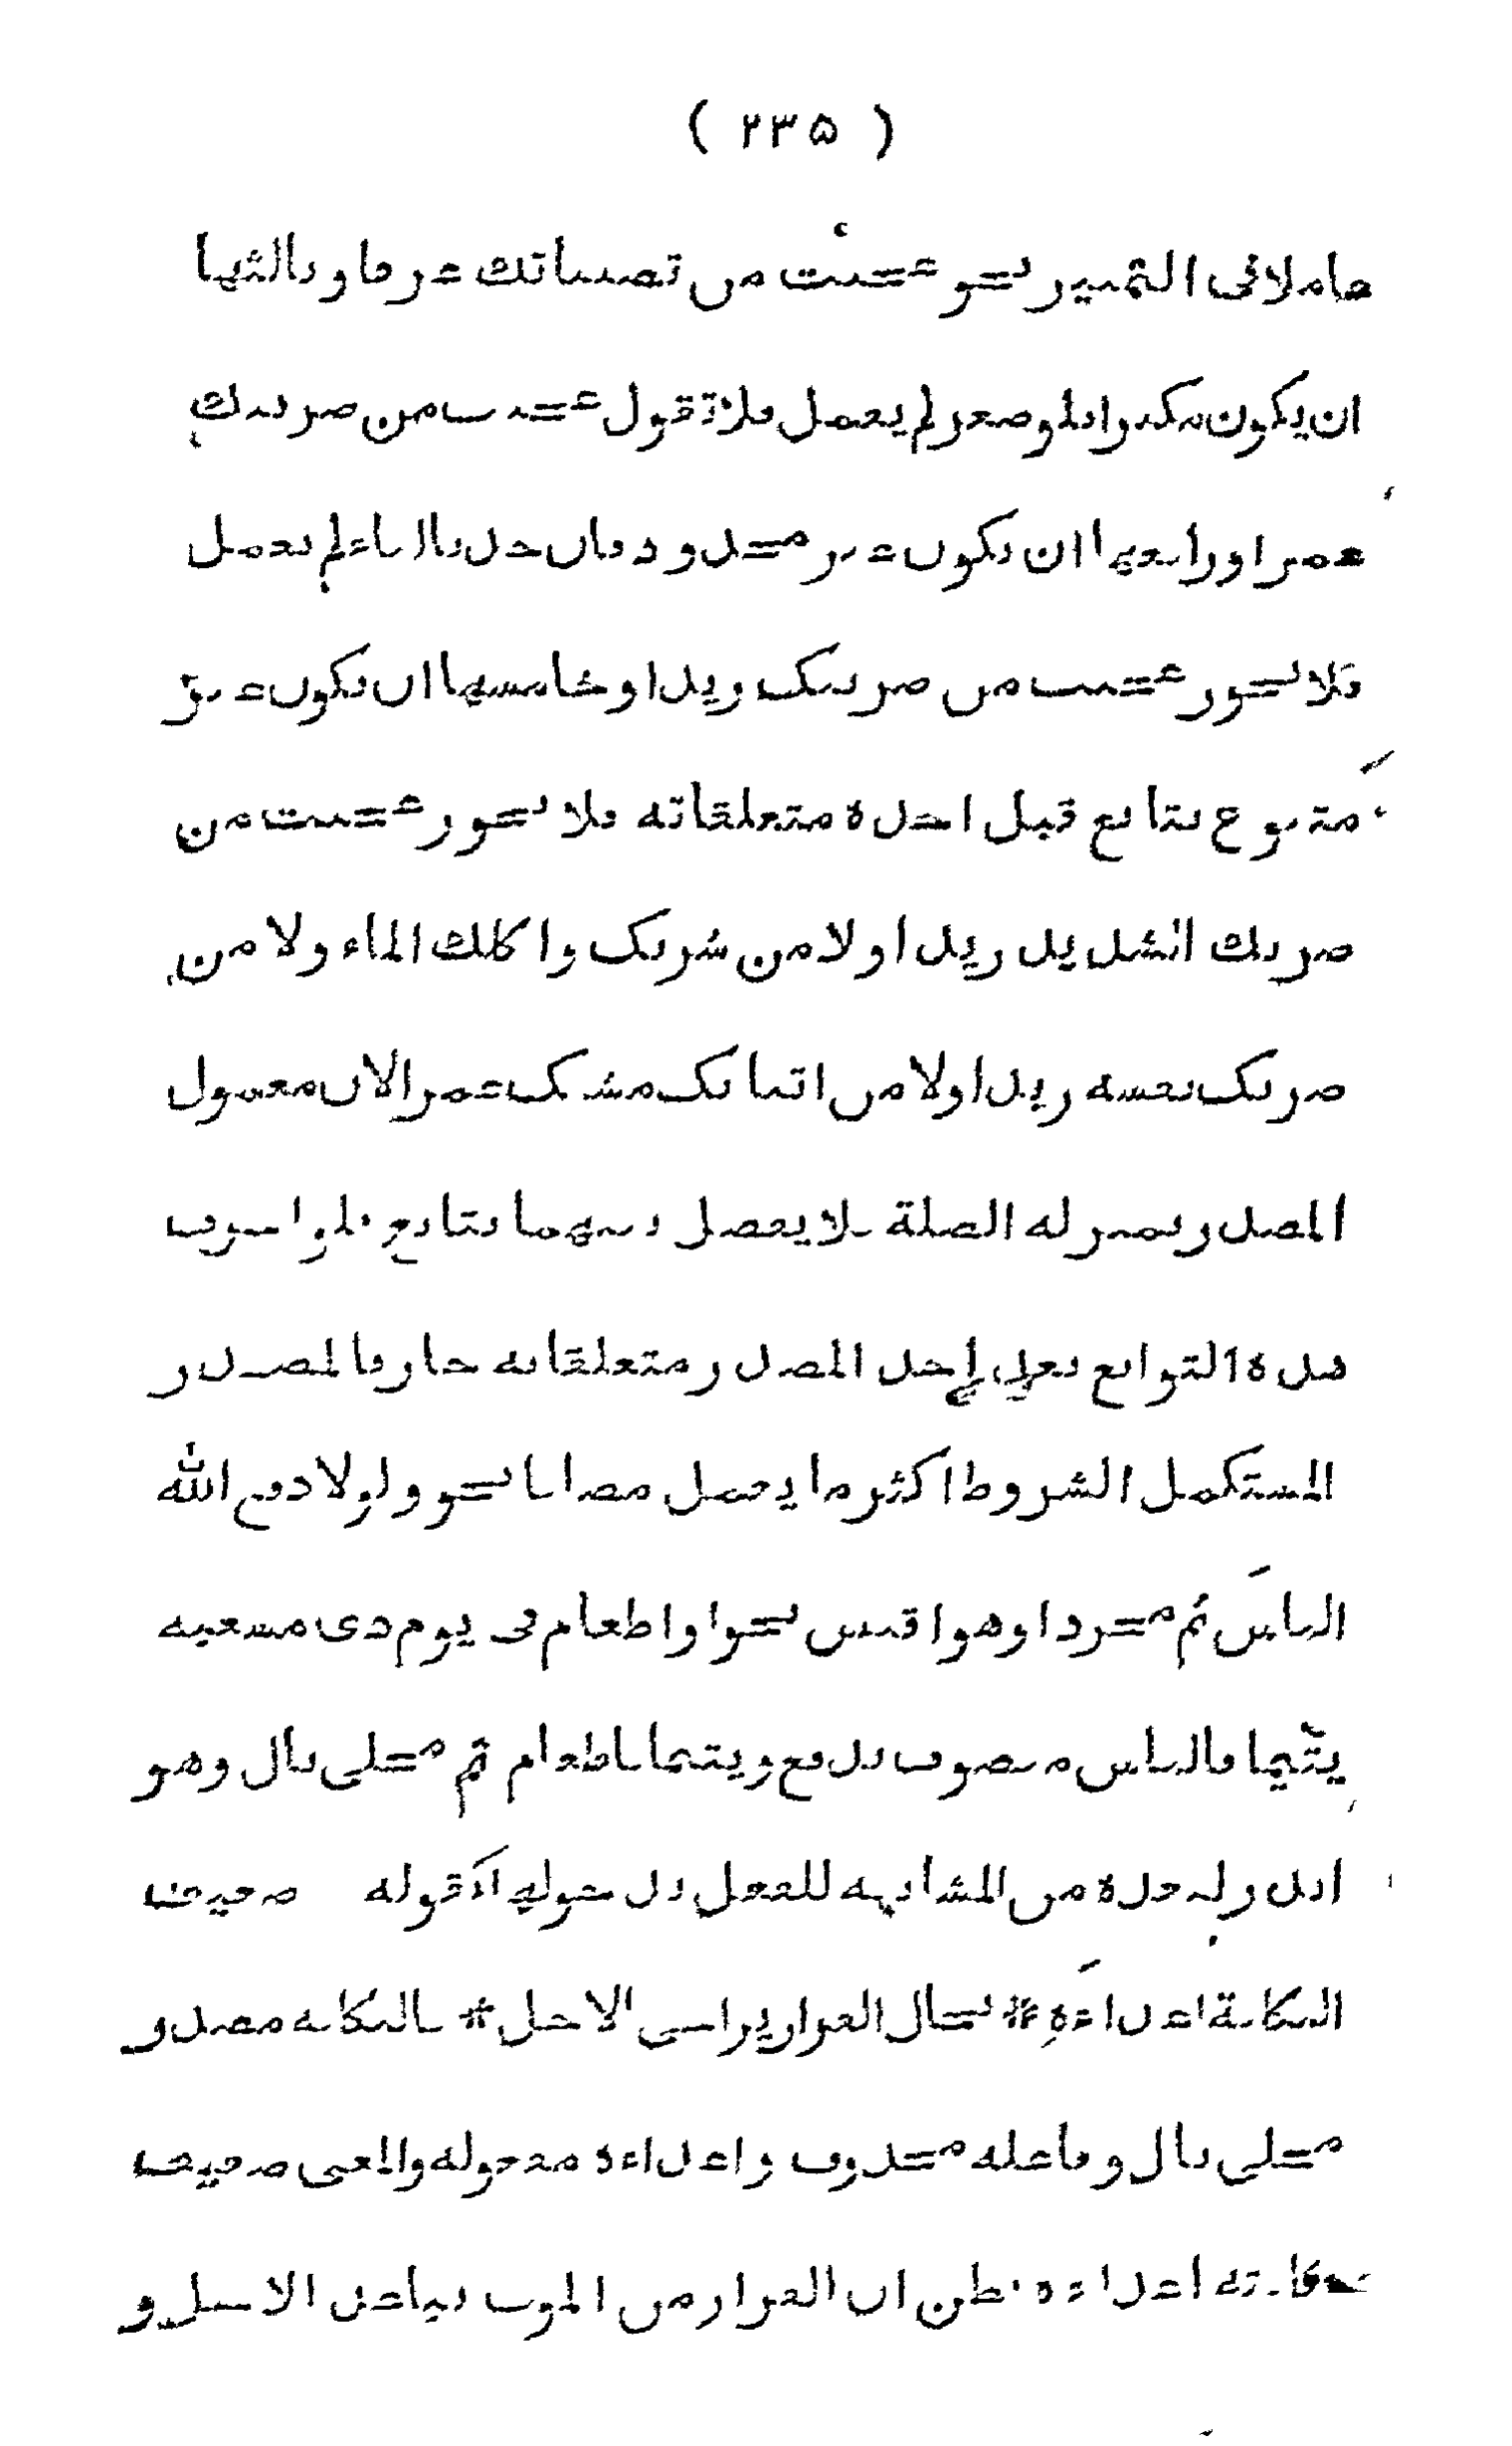 ( ٢٣٥ )
عاملا فى التمييز نحو عجبت من تصببك عرقا وثالثها
ان يكون مكبرا فلو صغر لم يعمل فلا تقول عجبت من ضريبك
عمرا ورابعها ان يكون غير محدود فان حد بالتاء لم يعمل
فلا يجوز عجبت من ضربتك زيدا وخامسها ان يكون غير
متبوع بتابع قبل اخذه متعلقاته فلا يجوز عجبت من
ضربك الشديد زيدا ولا من شربك واكلك الماء ولا من
ضربك نفسه زيدا ولا من اتيانك مشيك عمرا لان معمول
المصدر بمنزلة الصلة فلا يفصل بينهما بتابع فلو اخرت
هذه التوابع بعد اخذ المصدر متعلقاته جاز فالمصدر
المستكمل الشروط اكثر ما يعمل مضافا نحو ولولا دفع الله
الناس ثم مجردا وهو اقيس نحو او اطعام فى يوم ذى مسغبة
يتيما فالناس منصوب بدفع ويتيما باطعام ثم محلى بال وهو
اندر لبعده من المشابهة للفعل بدخولها كقوله ضعيف
النكاية اعداءه * يخال الفرار يراخى الاجل * فالنكاية مصدر
محلى بال وفاعله محذوف واعداءه مفعوله والمعنى ضعيف
نكايته اعداءه يظن ان الفرار من الموت يباعد الاجل و